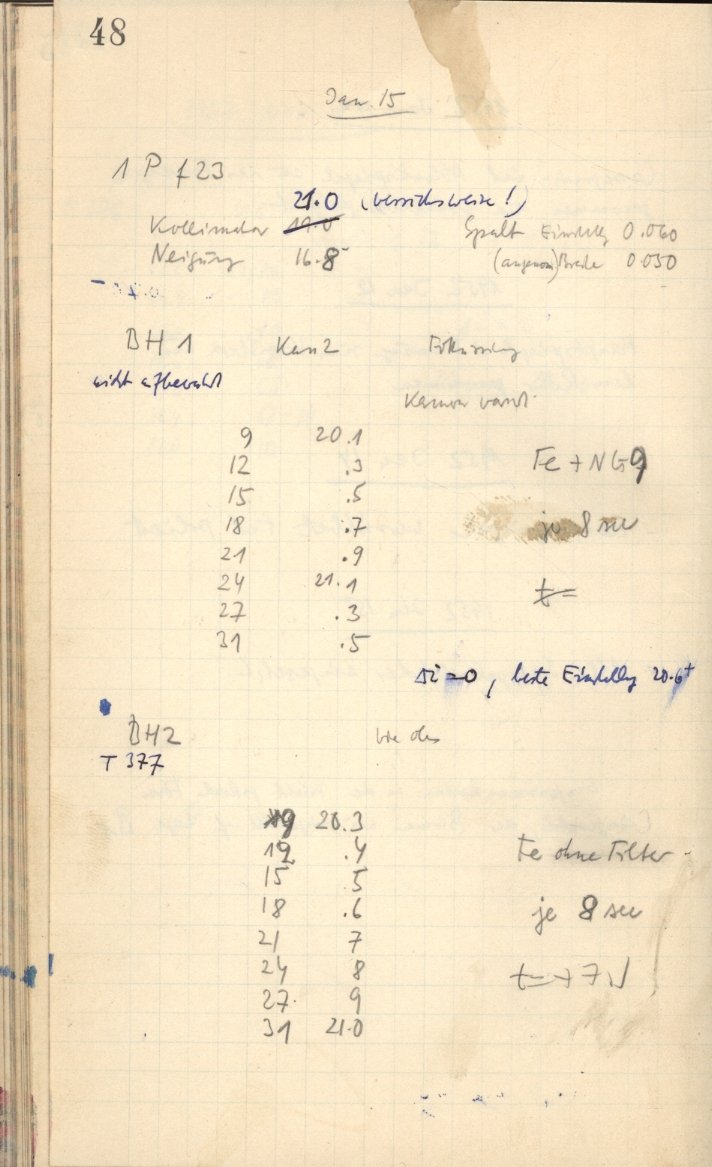 48
Jan. 15
1 P f 23
21.0 (versuchsweise!)
Kollimator 19.0 Spalt Einstellg 0.060
Neigung 16.8 (angenom) Breite 0.050
BH 1 Kam 2 Fokussierung
nicht aufbewahrt
Kamera variiert
9 20.1
12 .3 Fe + NG9
15 .5
18 .7 je 8 sec
21 .9
24 21.1 t=
27 .3
31 .5
Δi=0, beste Einstellg 20.6+
BH2 wie oben
T 377
9 20.3
12 .4 Fe ohne Filter
15 5
18 .6 je 8 sec
21 7
24 8 t=+7
27. 9
31 21.0